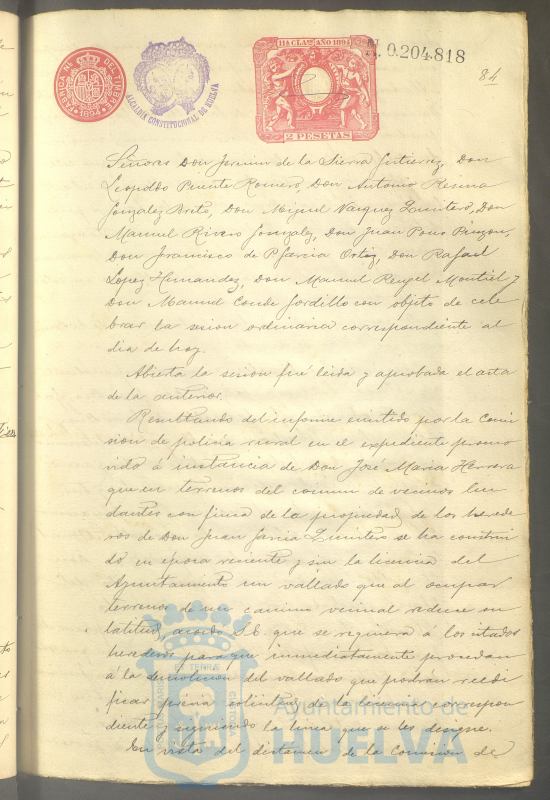 11ª CLASE AÑO 1894
N. 0.204.818
84
FABRICA NAL DEL TIMBRE
1894
ALCALDIA CONSTITUCIONAL DE HUELVA
2 PESETAS
Señores Don Jermin de la Sierra Gutierrez, Don
Leopoldo Puente Romero, Don Antonio Resena
Gonzalez Brito, Don Miguel Vazquez Quintero, Don
Manuel Rivero Gonzalez, Don Juan Pons Pinzon,
Don Francisco de P. Garcia Ortiz, Don Rafael
Lopez Hernandez, Don Manuel Rengel Montiel y
Don Manuel Conde Gordillo con objeto de cele
brar la sesion ordinaria correspondiente al
dia de hoy.
Abierta la sesion fue leida y aprobada el acta
de la anterior.
Resultando del informe emitido por la Comi
sion de policia rural en el expediente promo
vido á instancia de Don José Maria Herrera
que en terrenos del comun de vecinos lin
dantes con finca de la propiedad de los herede
ros de Don Juan Garcia Quintero se ha construi
do en época reciente y sin la licencia del
Ayuntamiento un vallado que al ocupar
terrenos de un camino vecinal reduce su
latitud, acordó S.E. que se requiera a los citados
herederos para que inmediatamente procedan
á la demolicion del vallado que podran reedi
ficar previa solicitud de la licencia correspon
diente y siguiendo la linea que se les designe.
En vista del dictamen de la Comision de
Ayuntamiento de
HUELVA